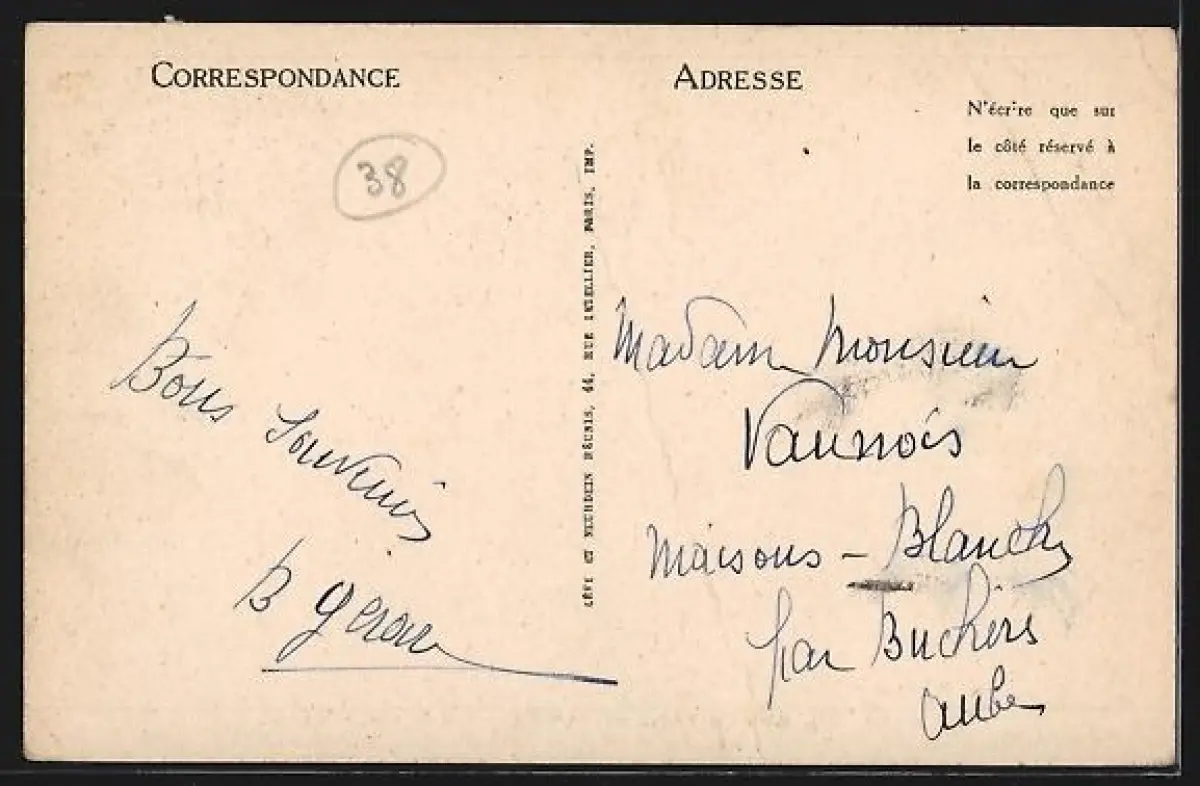 CORRESPONDANCE
38
Bons
Souvenirs
B Gérard
LÉVY ET NEURDEIN RÉUNIS, 44, RUE LETELLIER, PARIS, IMP.
ADRESSE
N'écrire que sur
le côté réservé à
la correspondance
Madame Monsieur
Vaunois
Maisons - Blanche
par Buchères
Aube